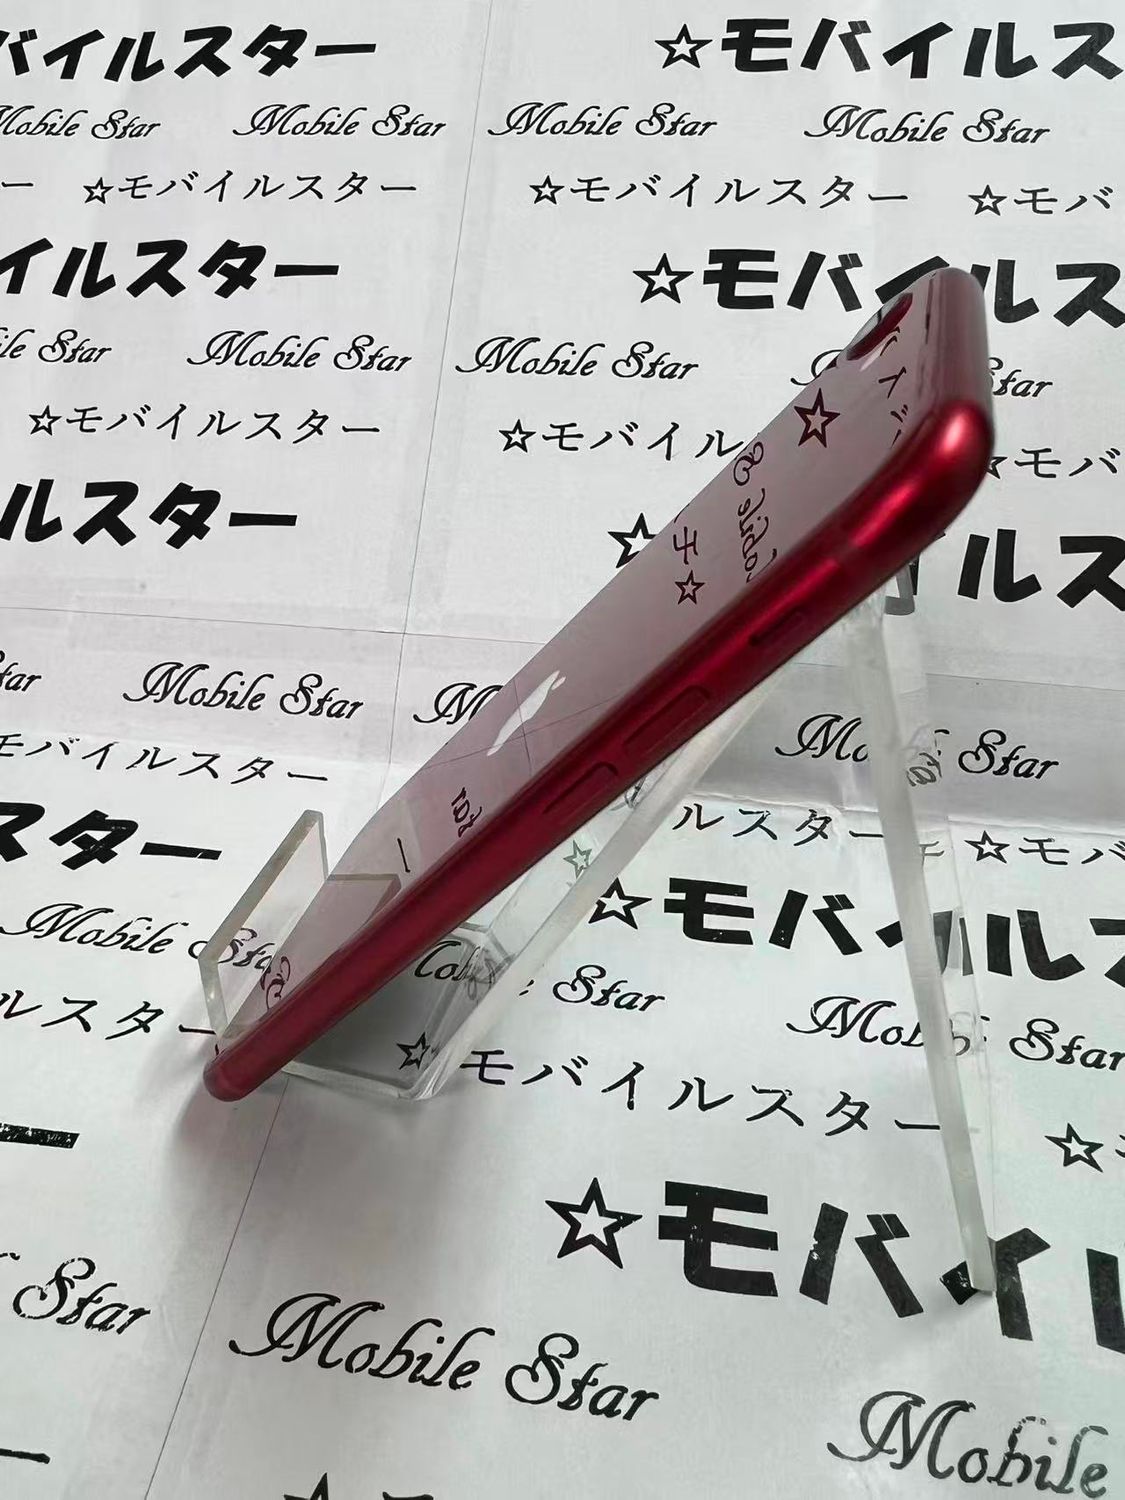 バイルスター ☆モバイルス
Mobile Star Mobile Star Mobile Star Mobile Star
ー ☆モバイルスター ☆モバイルスター ☆モバ
イルスター ☆モバイルス
ile Star Mobile Star Mobile Star Star
☆モバイルスター ☆モバイル ☆モバ
ルスター ☆ ルス
tar Mobile Star Mo Mo Star
モバイルスター ルスター ☆モバ
スター ☆モバイルス
Mobile Sta Mobil Star Mobil Star
ルスター ☆モバイルスター ☆
ー ☆モバイル
Star Mobile Star Mobile
ー ☆モ